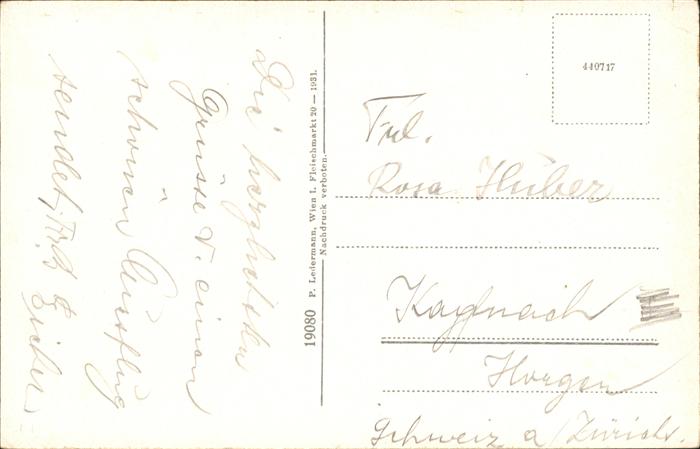 Die herzlichsten
Grüsse v. einen
schönen Ausflug
sendet, Frd.
19080 P. Ledermann, Wien I. Fleischmarkt 20 — 1931.
Nachdruck verboten.
440717
Frl.
Rosa Huber
Käpfnach
Horgen
Schweiz a/Zürichs.